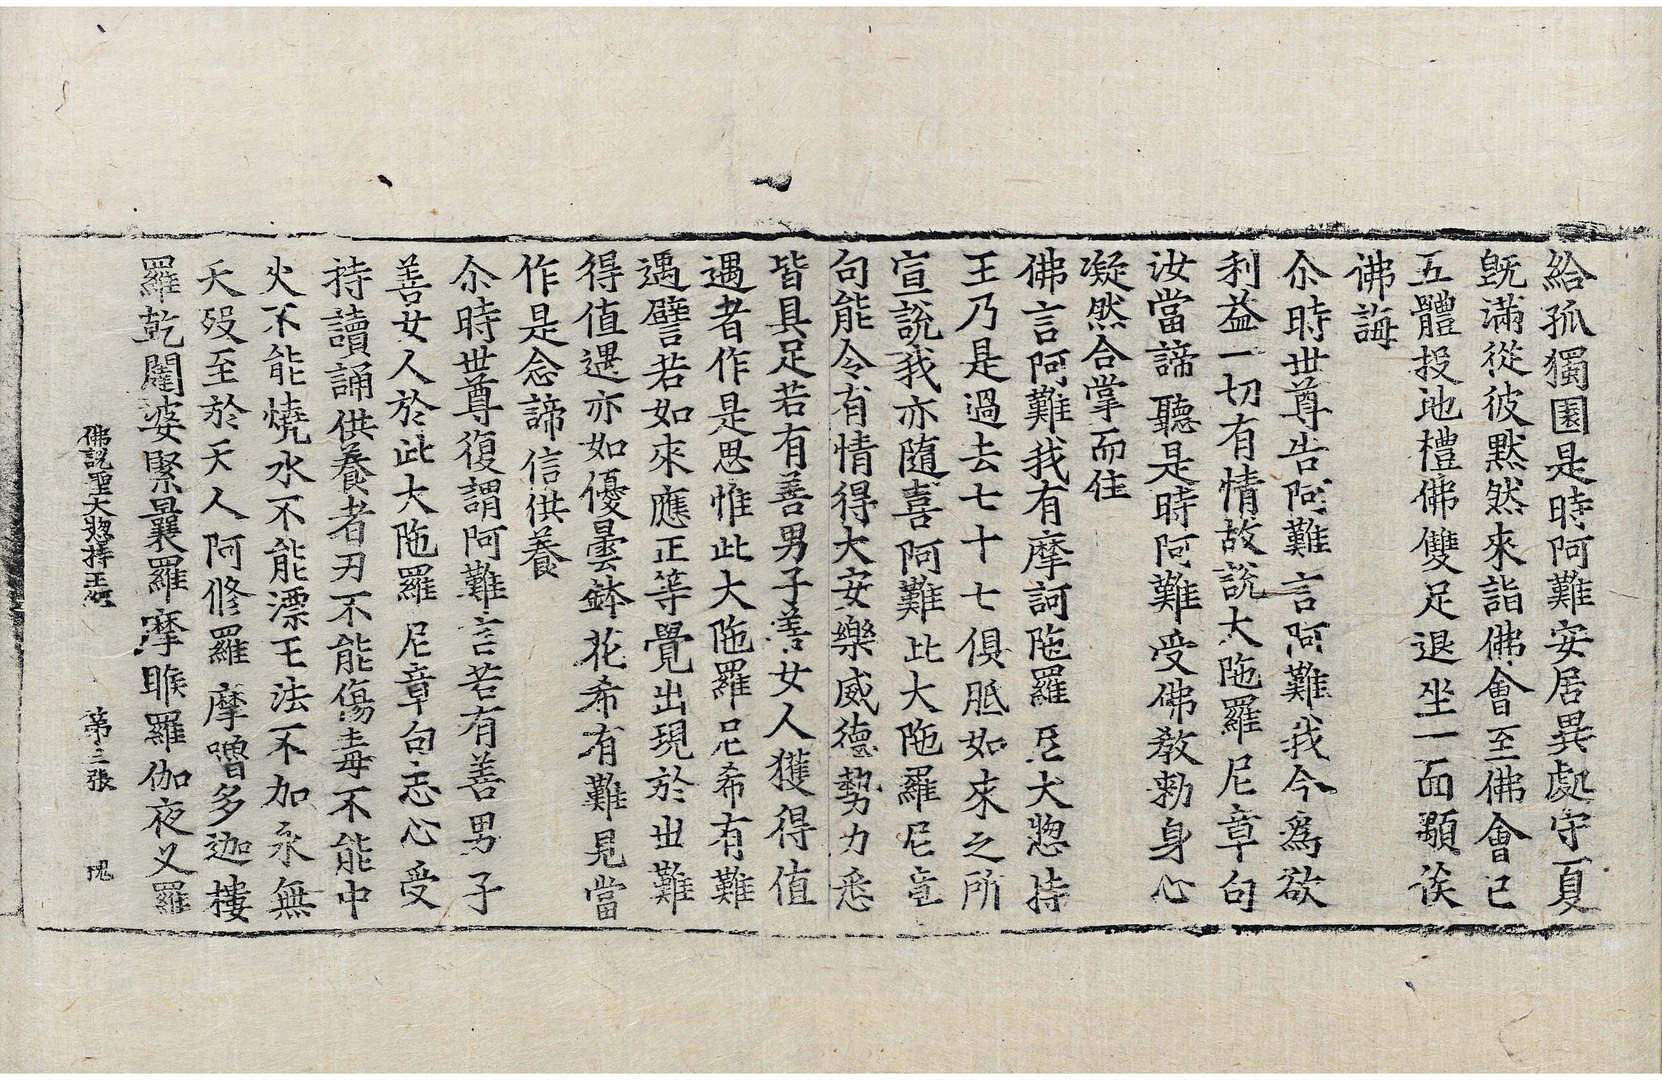 給孤獨園是時阿難安居異處守夏
旣滿從彼默然來詣佛會至佛會已
五體投地禮佛雙足退坐一面顒俟
佛誨
尒時世尊告阿難言阿難我今為欲
利益一切有情故說大陁羅尼章句
汝當諦聽是時阿難受佛教勑身心
凝然合掌而住
佛言阿難我有摩訶陁羅尼大惣持
王乃是過去七十七俱胝如來之所
宣說我亦隨喜阿難此大陁羅尼章
句能令有情得大安樂威德勢力悉
皆具足若有善男子善女人獲得值
遇者作是思惟此大陁羅尼希有難
遇譬若如來應正等覺出現於世難
得值遇亦如優曇鉢花希有難見當
作是念諦信供養
尒時世尊復謂阿難言若有善男子
善女人於此大陁羅尼章句志心受
持讀誦供養者刃不能傷毒不能中
火不能燒水不能漂王法不加永無
夭殁至於天人阿修羅摩嚕多迦樓
羅乾闥婆緊曩羅摩睺羅伽夜叉羅
佛說聖大惣持王經 第三張 塊